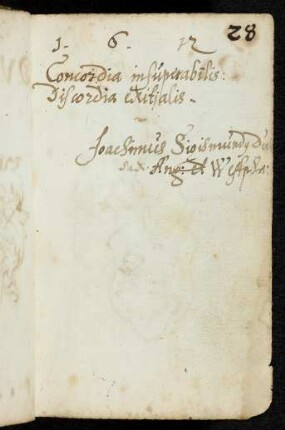 28
1. 6. 12
Concordia insuperabilis:
Discordia exitialis.
Joachimus Sigismundg Dux
Sax: Ang: et Westpha: